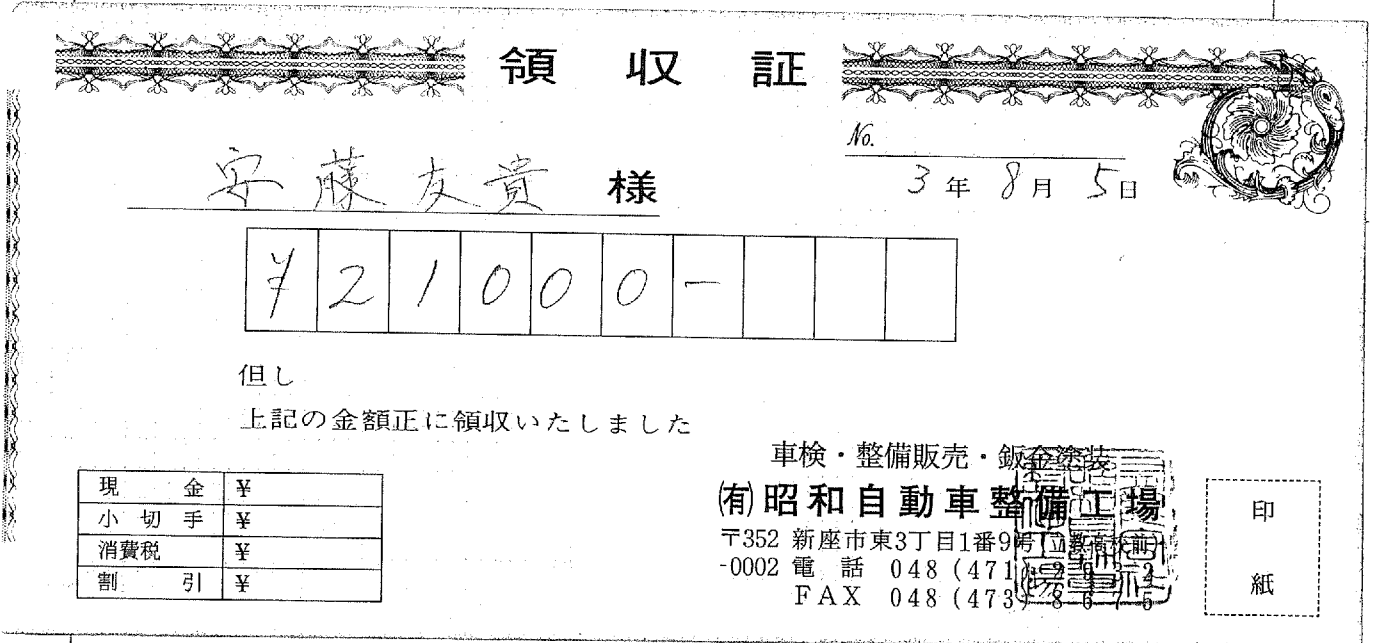 領収証
No.
安藤友貴 様
3年 8月 5日
¥21000-
但し
上記の金額正に領収いたしました
現金 ¥
小切手 ¥
消費税 ¥
割引 ¥
車検・整備販売・鈑金塗装
(有)昭和自動車整備工場
〒352 新座市東3丁目1番9号(立教高校前)
-0002 電話 048(471)
FAX 048(473)8675
印紙